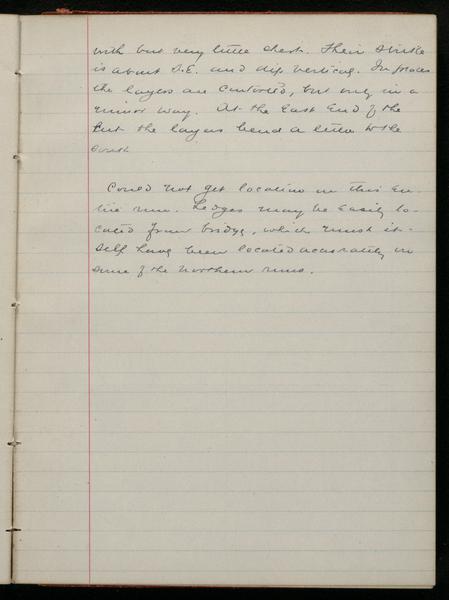 with but very little chert. Their strike
is about S.E. and dip vertical. In places
the layers are contorted, but only in a
minor way. At the East End of the
Cut the layers bend a little to the
south
Could not get location in this en-
tire run. Ledges may be easily lo-
cated from bridge, which must it-
self have been located accurately in
some of the northern runs.